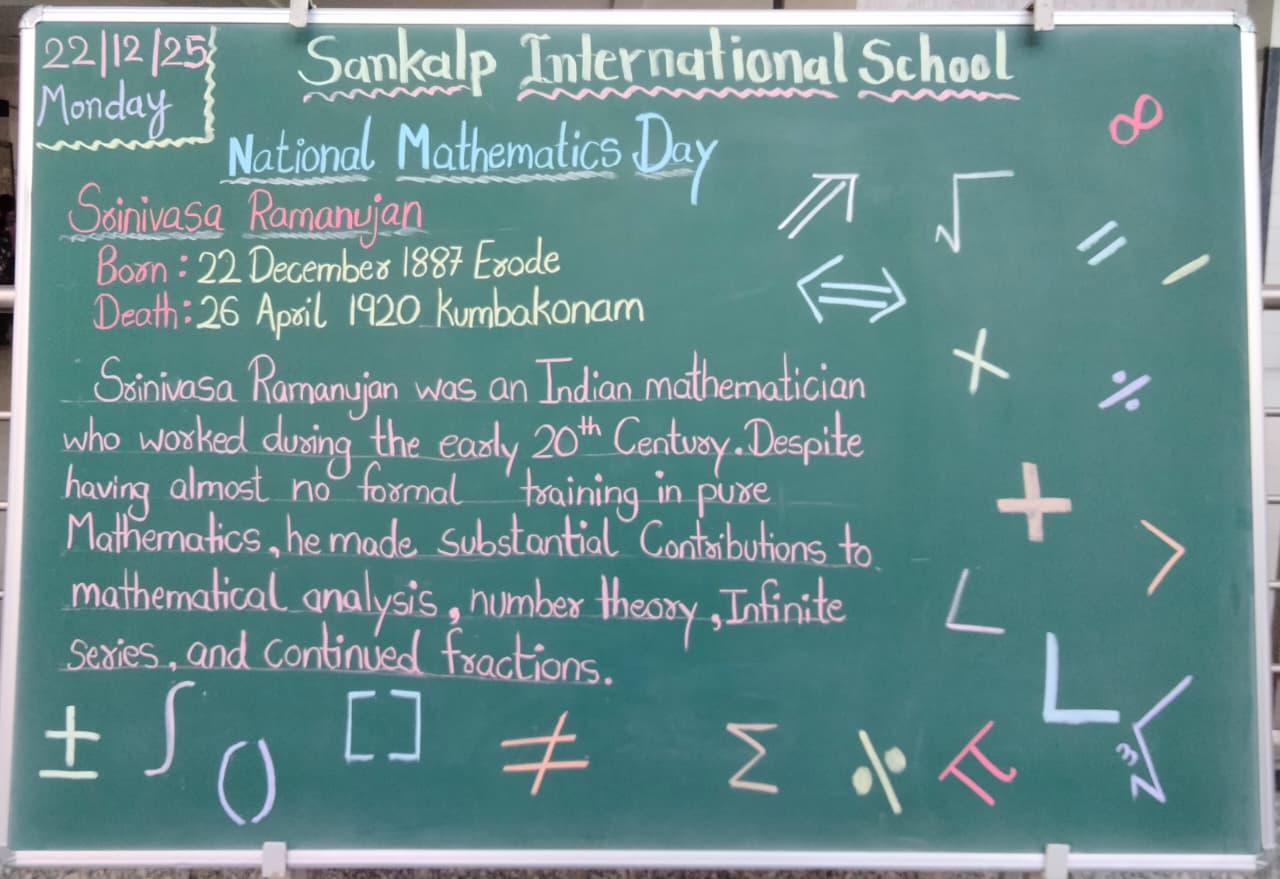 22/12/25
Monday
Sankalp International School
National Mathematics Day
Srinivasa Ramanujan
Born : 22 December 1887 Erode
Death : 26 April 1920 Kumbakonam
Srinivasa Ramanujan was an Indian mathematician
who worked during the early 20th Century. Despite
having almost no formal training in pure
Mathematics, he made substantial Contributions to
mathematical analysis, number theory, Infinite
series, and continued fractions.
∞
⇗ √ = −
⇔
× ÷
+ >
∠ ∟
± ∫ () [ ] ≠ Σ % π ∛